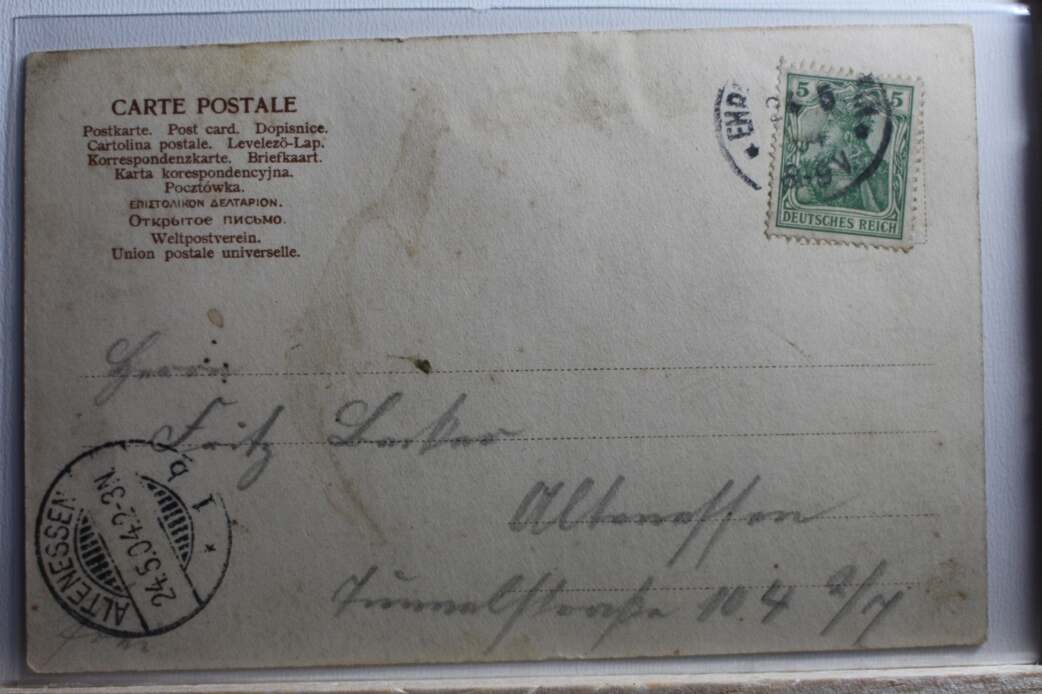 CARTE POSTALE
Postkarte. Post card. Dopisnice.
Cartolina postale. Levelező-Lap.
Korrespondenzkarte. Briefkaart.
Karta korespondencyjna.
Pocztówka.
ΕΠΙΣΤΟΛΙΚΟΝ ΔΕΛΤΑΡΙΟΝ.
Открытое письмо.
Weltpostverein.
Union postale universelle.
5 5
DEUTSCHES REICH
Herrn
Fritz Becker
Altenessen
Tunnelstraße 104
ALTENESSEN
24.5.04.2-3N
1 b